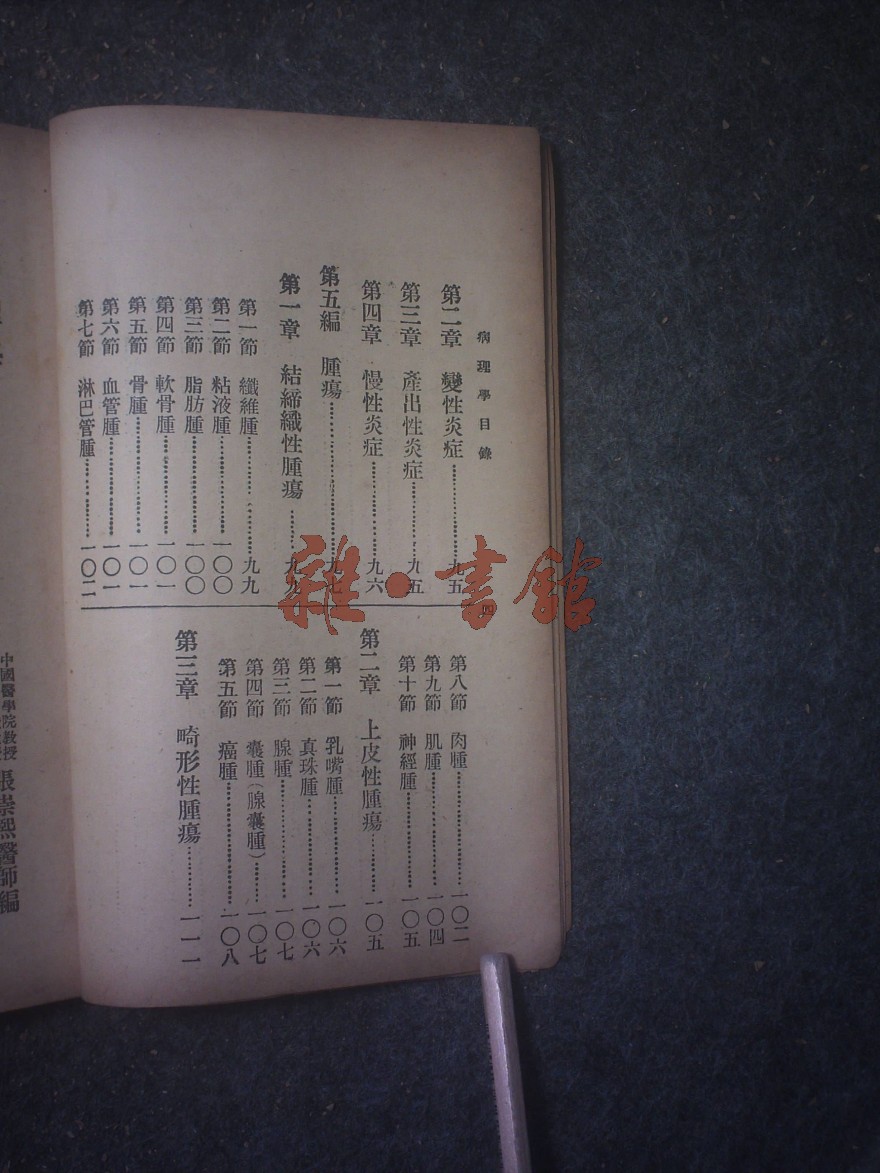 病理學目錄
四
第二章 變性炎症…………九五
第三章 產出性炎症…………九五
第四章 慢性炎症…………九六
第五編 腫瘍…………九七
第一章 結締織性腫瘍…………九九
第一節 纖維腫…………九九
第二節 粘液腫…………一〇〇
第三節 脂肪腫…………一〇〇
第四節 軟骨腫…………一〇一
第五節 骨腫…………一〇一
第六節 血管腫…………一〇一
第七節 淋巴管腫…………一〇二
第八節 肉腫…………一〇二
第九節 肌腫…………一〇四
第十節 神經腫…………一〇五
第二章 上皮性腫瘍…………一〇五
第一節 乳嘴腫…………一〇六
第二節 真珠腫…………一〇六
第三節 腺腫…………一〇七
第四節 囊腫(腺囊腫)…………一〇七
第五節 癌腫…………一〇八
第三章 畸形性腫瘍…………一一一
中國醫學院教授
張崇熙醫師編
雜·書館